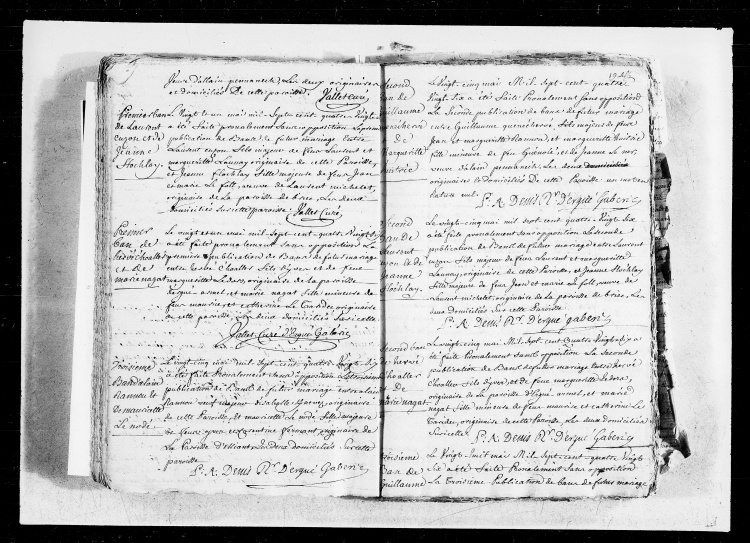 veuve d'allain pennanech, Les deux originaires
et domiciliés De cette paroisse. Vallet Curé
Premier ban
de Laurent
cuzon et de
jeanne
Flochlay.
Le vingt et un mai mil Sept cent quatre vingt
a été Faite pronalement Sans opposition La premiere
publication de Bans de futur mariage Entre
Laurent cuzon fils majeur de feux Laurent et
marguerite Launay originaire de cette Paroisse,
et jeanne flochlay Fille majeure de feux jean
et marie Le fall, veuve de Laurent michelet,
originaire de La paroisse de briec, Les deux
domiciliés Sur cette paroisse. Vallet Curé
Premier
ban de
hervé choallec
et De
marie nagat
Le vingt et un mai mil Sept cent quatre Vingt Six
a été faite pronalement Sans opposition La
premiere publication de Bans de futur mariage
entre hervé Choallec fils d'yves et de feue
marguerite Le dore, originaire de la paroisse
d'ergué armel et marie nagat fille mineure de
feu maurice et catherine Le Tandec, originaire
de cette paroisse, Les deux domiciliés Sur icelle
Vallet Curé D'Ergué Gaberic
Troisieme
Ban d'alain
riannel et
De mauricette
Le nodé.
Le vingt cinq mai mil Sept cent quatre Vingt Six
a été faite Pronalement Sans opposition La troisieme
publication de Bans de futur mariage entre alain
de cette Paroisse, et mauricette Le nodé fille majeure
La Paroisse d'elliant, Les deux domiciliés Sur cette
paroisse.
P. A. Denis Rr. D'ergué Gaberic
Second
ban de
Guillaume
quenéhervé
De
marguerite
Le Vingt cinq mai Mil Sept cent quatre
Vingt Six a été Faite Pronalement Sans opposition
La Seconde publication de bans de futur mariage
entre Guillaume quenéhervé, fils majeur de feux
jean et marguerite
fille mineure de feu Guénolé, et de jeanne Le
veuve d'alain pennanech, Les deux domiciliés
originaires et domiciliés De cette Paroisse un mot en
rature nul. P. A. Denis Rr. D'ergué Gaberic
Second
ban de
Laurent
cuzon et de
jeanne
Flochlay.
Le vingt-cinq mai mil Sept cent quatre-vingt Six
a été faite pronalement Sans opposition La Seconde
publication de Bans de futur mariage entre Laurent
cuzon fils majeur de feux Laurent et marguerite
Launay, originaire de cette Paroisse, et Jeanne Flochlay
fille majeure de feux Jean et marie Le fall, veuve de
Laurent michelet, originaire de la paroisse de briec, Les
deux domiciliés Sur cette paroisse.
P. A. Denis Rr. D'ergué gaberic
Second ban
de hervé
choallec
De
marie nagat
Le vingt cinq mai mil Sept cent Quatre Vingt Six a
été faite Pronalement Sans opposition La Seconde
publication de Bans de futur mariage entre hervé
Choallec fils d'yves, et de feue marguerite Le dore,
originaire de la paroisse d'Ergué armel, et marie
nagat fille mineure de feu maurice et catherine Le
Tandec, originaire de cette paroisse, Les deux domiciliés
Sur icelle. P. A. Denis Rr. D'ergué Gaberic
Troisieme
Ban de
Guillaume
Le Vingt-huit mai Mil Sept cent quatre Vingt
Six a été Faite Pronalement Sans opposition
La Troisième Publication de bans de futur mariage